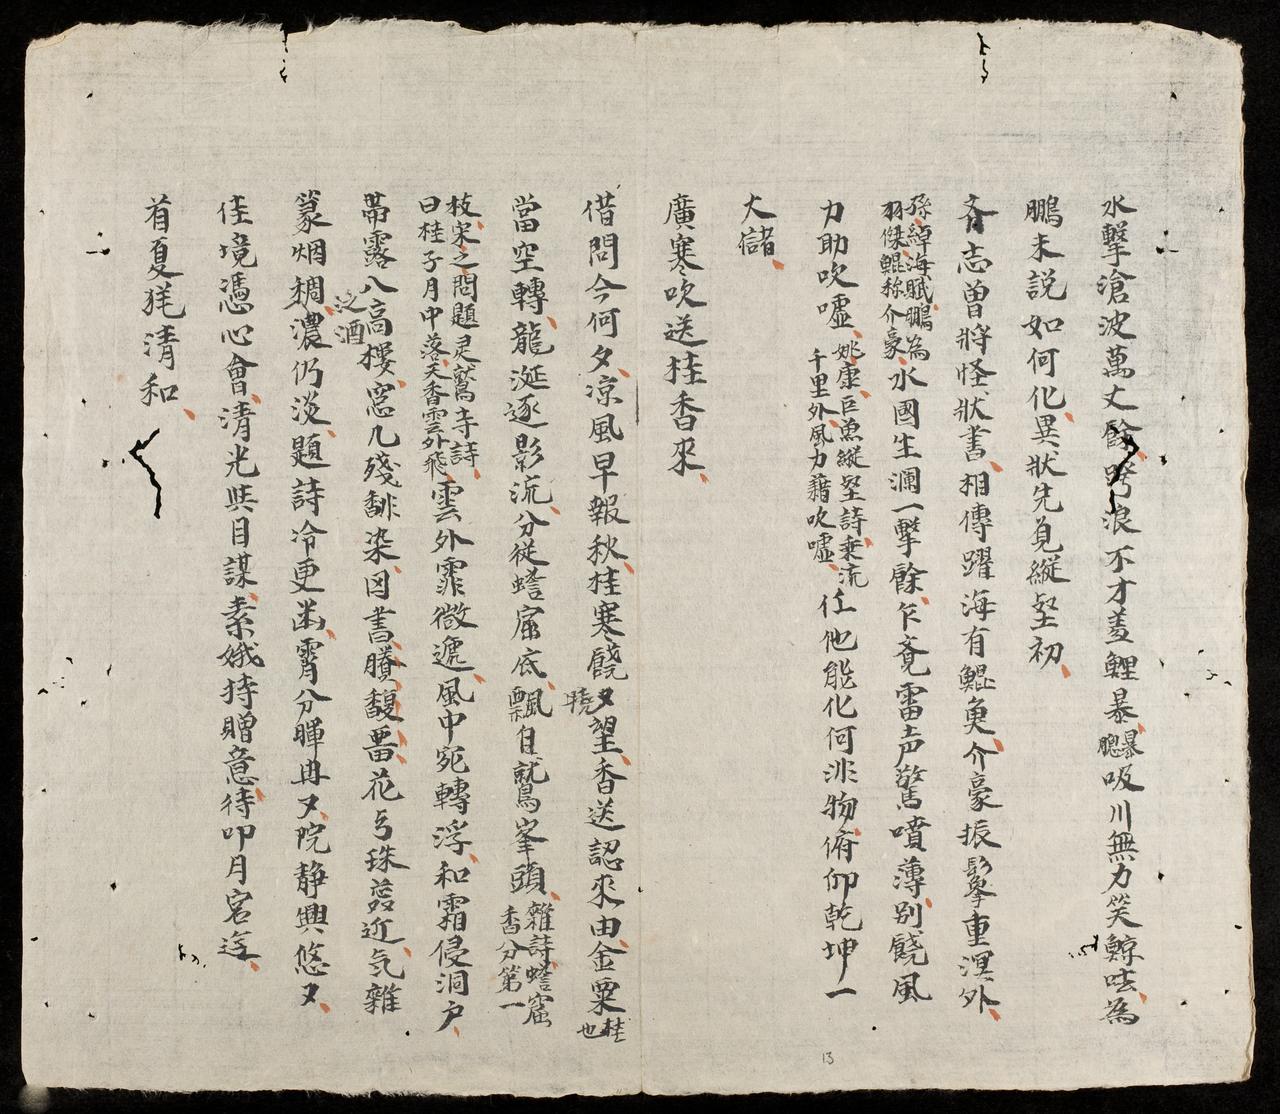 水擊滄波萬丈餘跨浪不才羞鯉暴暴腮吸川無力笑鯨呿為
鵬未説如何化異狀先覓縱壑初
齊志曾將怪狀書相傳躍海有鯤魚介豪振鬣擎重溟外
孫綽海賦鵬為羽傑鯤称介豪水國生瀾一擊餘乍覔雷声驚噴薄別饒風
力助吹噓姚康巨魚縱壑詩乗流千里外風力藉吹噓任他能化何非物俯仰乾坤一
大儲
廣寒吹送桂香來
借問今何夕凉風早報秋桂寒饒曉望香送認來由金粟桂也
當空轉龍涎逐影流分従蟾窟底飄自鷲峯頭雜詩蟾窟香分第一
枝宋之問題灵鷲寺詩曰桂子月中落天香雲外飛雲外霏微遞風中宛轉浮和霜侵洞户
帶露入高樓窓几殘馡染図書賸馥畱花与珠蕊近気雜
泛酒
篆烟稠濃仍淡題詩冷更幽霄分暉冉又院静興悠又
佳境憑心會清光與目謀素娥持贈意待叩月宮遊
首夏猶清和